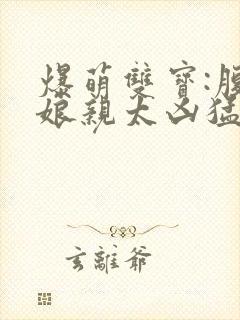 爆萌雙寶:腹
娘親太凶猛
玄離爺